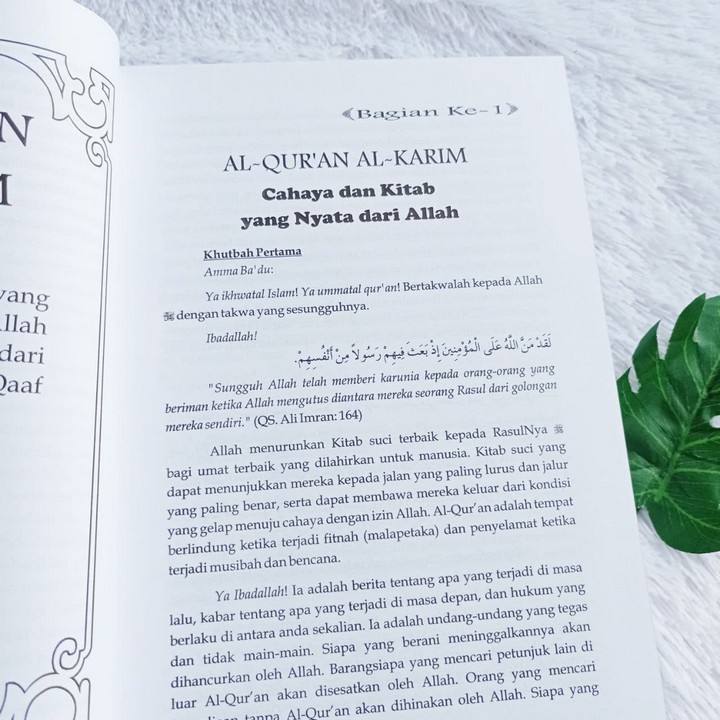 N
M
yang
llah
dari
Qaaf
Bagian Ke-1
AL-QUR'AN AL-KARIM
Cahaya dan Kitab
yang Nyata dari Allah
Khutbah Pertama
Amma Ba'du:
Ya ikhwatal Islam! Ya ummatal qur'an! Bertakwalah kepada Allah
ﷻ dengan takwa yang sesungguhnya.
Ibadallah!
لَقَدْ مَنَّ اللَّهُ عَلَى الْمُؤْمِنِينَ إِذْ بَعَثَ فِيهِمْ رَسُولاً مِنْ أَنْفُسِهِمْ.
"Sungguh Allah telah memberi karunia kepada orang-orang yang
beriman ketika Allah mengutus diantara mereka seorang Rasul dari golongan
mereka sendiri." (QS. Ali Imran: 164)
Allah menurunkan Kitab suci terbaik kepada RasulNya ﷺ
bagi umat terbaik yang dilahirkan untuk manusia. Kitab suci yang
dapat menunjukkan mereka kepada jalan yang paling lurus dan jalur
yang paling benar, serta dapat membawa mereka keluar dari kondisi
yang gelap menuju cahaya dengan izin Allah. Al-Qur'an adalah tempat
berlindung ketika terjadi fitnah (malapetaka) dan penyelamat ketika
terjadi musibah dan bencana.
Ya Ibadallah! Ia adalah berita tentang apa yang terjadi di masa
lalu, kabar tentang apa yang terjadi di masa depan, dan hukum yang
berlaku di antara anda sekalian. Ia adalah undang-undang yang tegas
dan tidak main-main. Siapa yang berani meninggalkannya akan
dihancurkan oleh Allah. Barangsiapa yang mencari petunjuk lain di
luar Al-Qur'an akan disesatkan oleh Allah. Orang yang mencari
tanpa Al-Qur'an akan dihinakan oleh Allah. Siapa yang